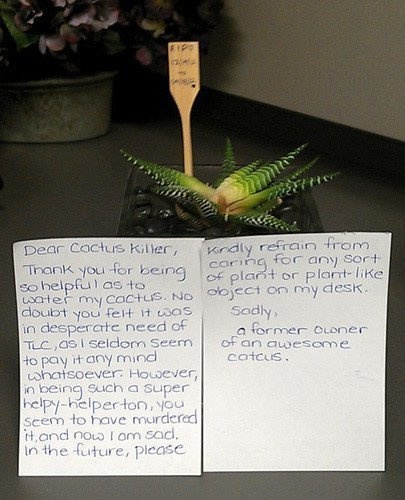 R.I.P.
to
Dear Cactus Killer,
Thank you for being
so helpful as to
water my cactus. No
doubt you felt it was
in desperate need of
TLC, as I seldom seem
to pay it any mind
whatsoever. However,
in being such a super
helpy-helperton, you
seem to have murdered
it, and now I am sad.
In the future, please
kindly refrain from
caring for any sort
of plant or plant-like
object on my desk.
Sadly,
a former owner
of an awesome
catcus.